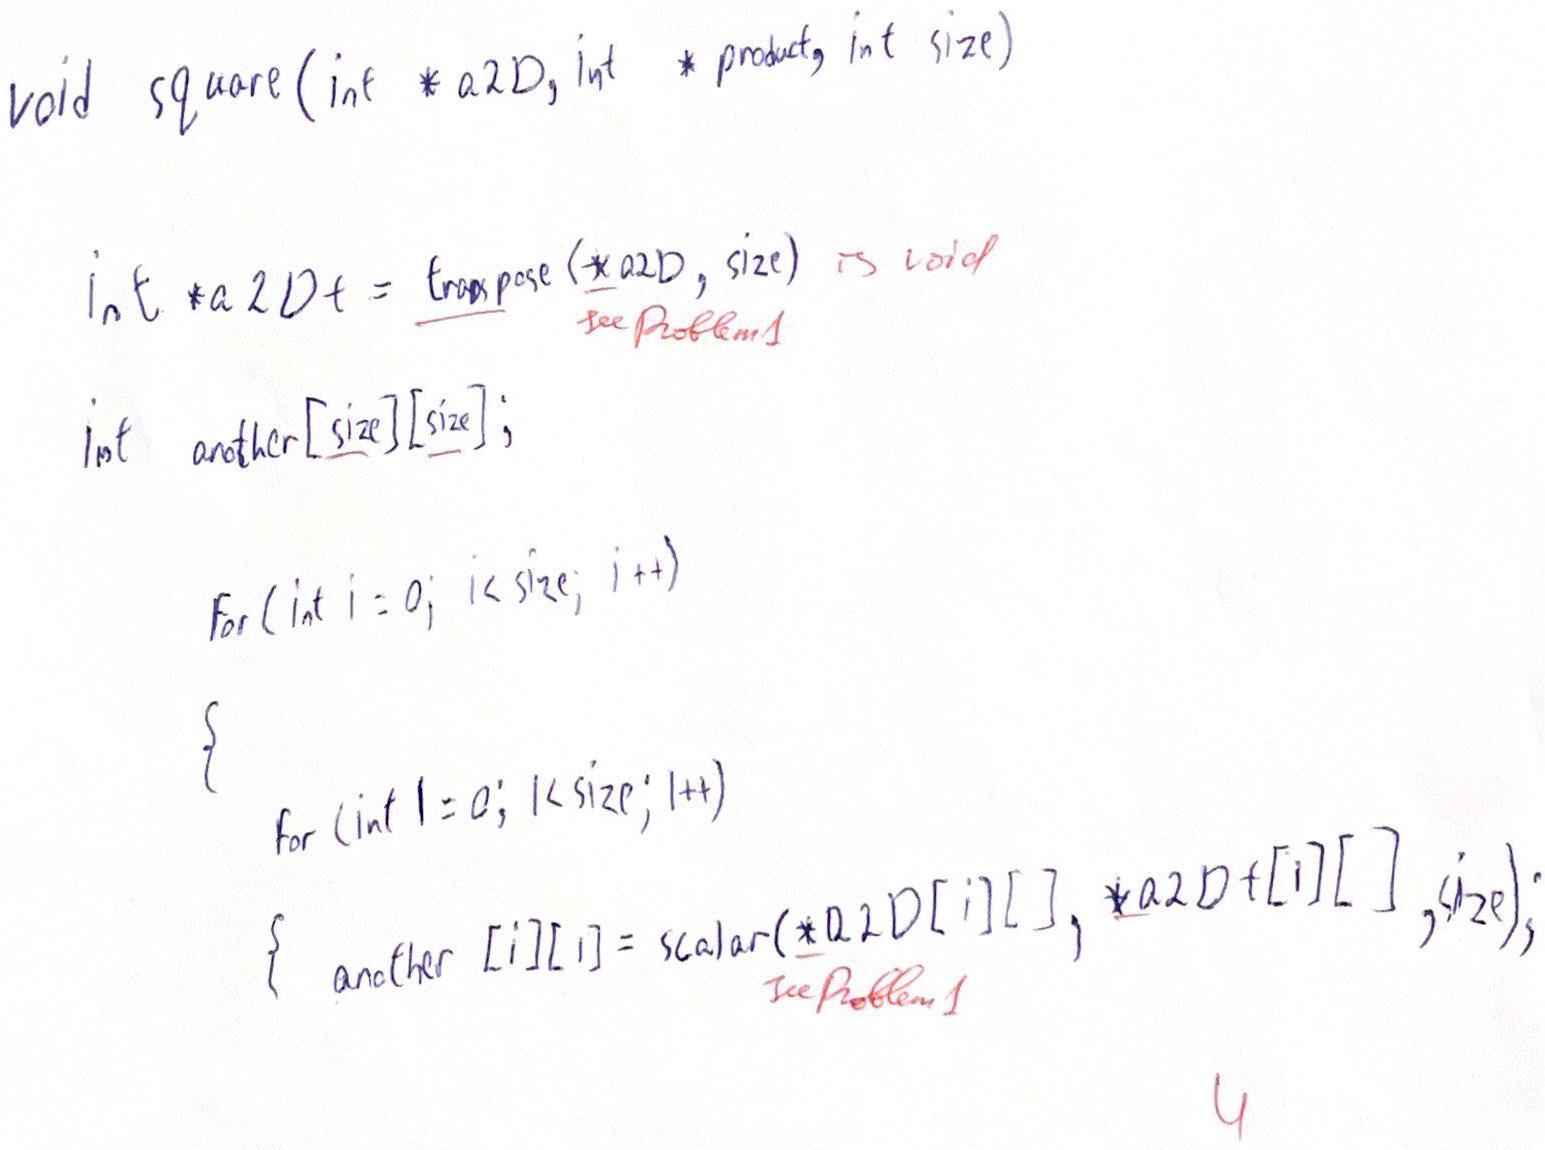 void square(int *a2D, int * product, int size)
int *a2Dt = transpose (*a2D, size) is void
see Problem 1
int another[size][size];
For(int i = 0; i< size; i++)
{
For (int l = 0; l< size; l++)
{ another [i][i] = scalar(*a2D[i][], *a2Dt[i][], size);
see Problem 1
4